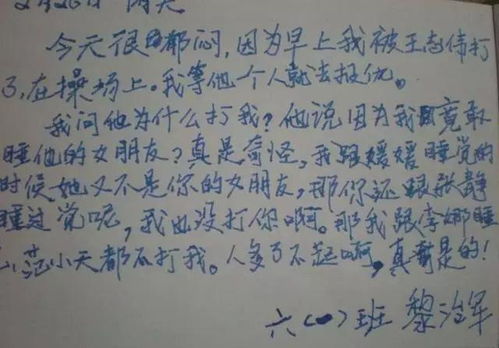 2月26日 雨天
今天很都闷,因为早上我被王志伟打
了,在操场上。我等他一个人就去报仇。
我问他为什么打我?他说因为我竟敢
睡他的女朋友?真是奇怪,我跟媛媛睡觉的
时候她又不是你的女朋友,那你还跟张静
睡过觉呢,我也没打你啊。那我跟李娜睡
范小天都不打我。人多了不起啊,真是的!
六(一)班 黎治军